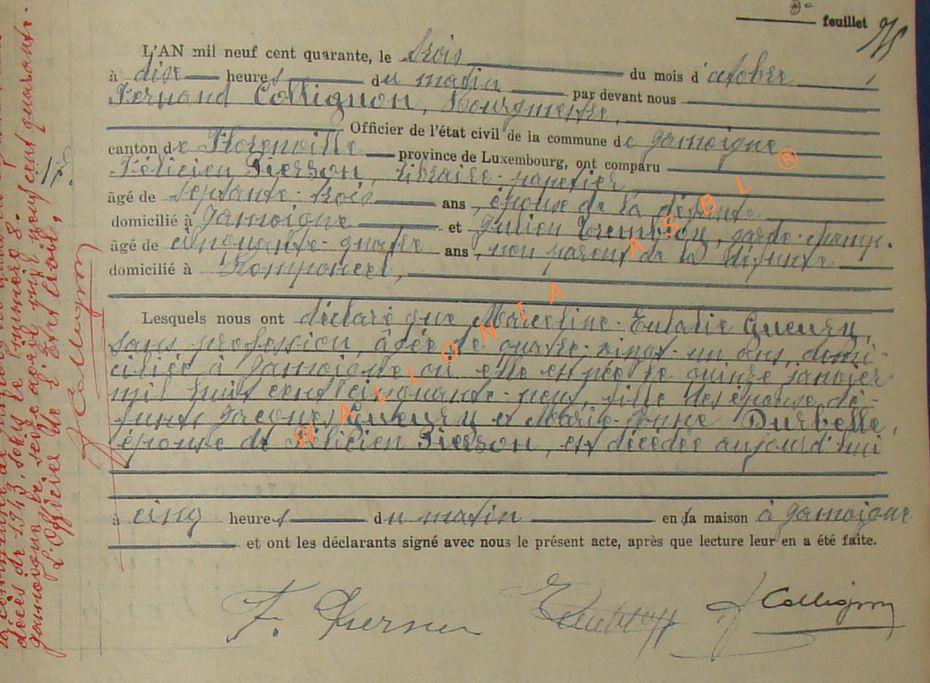 feuillet
L'AN mil neuf cent quarante, le trois du mois d'octobre
à dix heures du matin par devant nous
Fernand Collignon, Bourgmestre,
Officier de l'état civil de la commune de Jamoigne
canton de Florenville province de Luxembourg, ont comparu
Félicien Pierson, libraire-papetier,
âgé de septante-trois ans, époux de la défunte
domicilié à Jamoigne et Julien garde-champ.
âgé de cinquante-quatre ans, non parent de la défunte
domicilié à Romponcel,
Lesquels nous ont déclaré que Marceline-Eulalie Gueury,
sans profession, âgée de quatre-vingt-un ans, domi-
ciliée à Jamoigne où elle est née le quinze janvier
mil huit cent cinquante-neuf, fille des époux dé-
funts Jacques Gueury et Marie-Jeanne Durbelle,
épouse de Félicien Pierson, est décédée aujourd'hui
à cinq heures du matin en sa maison à Jamoigne
et ont les déclarants signé avec nous le présent acte, après que lecture leur en a été faite.
F. Pierson
J. Collignon
17.
décès de 1943, sous le numéro 8.
Jamoigne, le seize août mil neuf cent quarante-
L'Officier de l'Etat Civil,
J. Collignon
WALLONIA ASBL ®